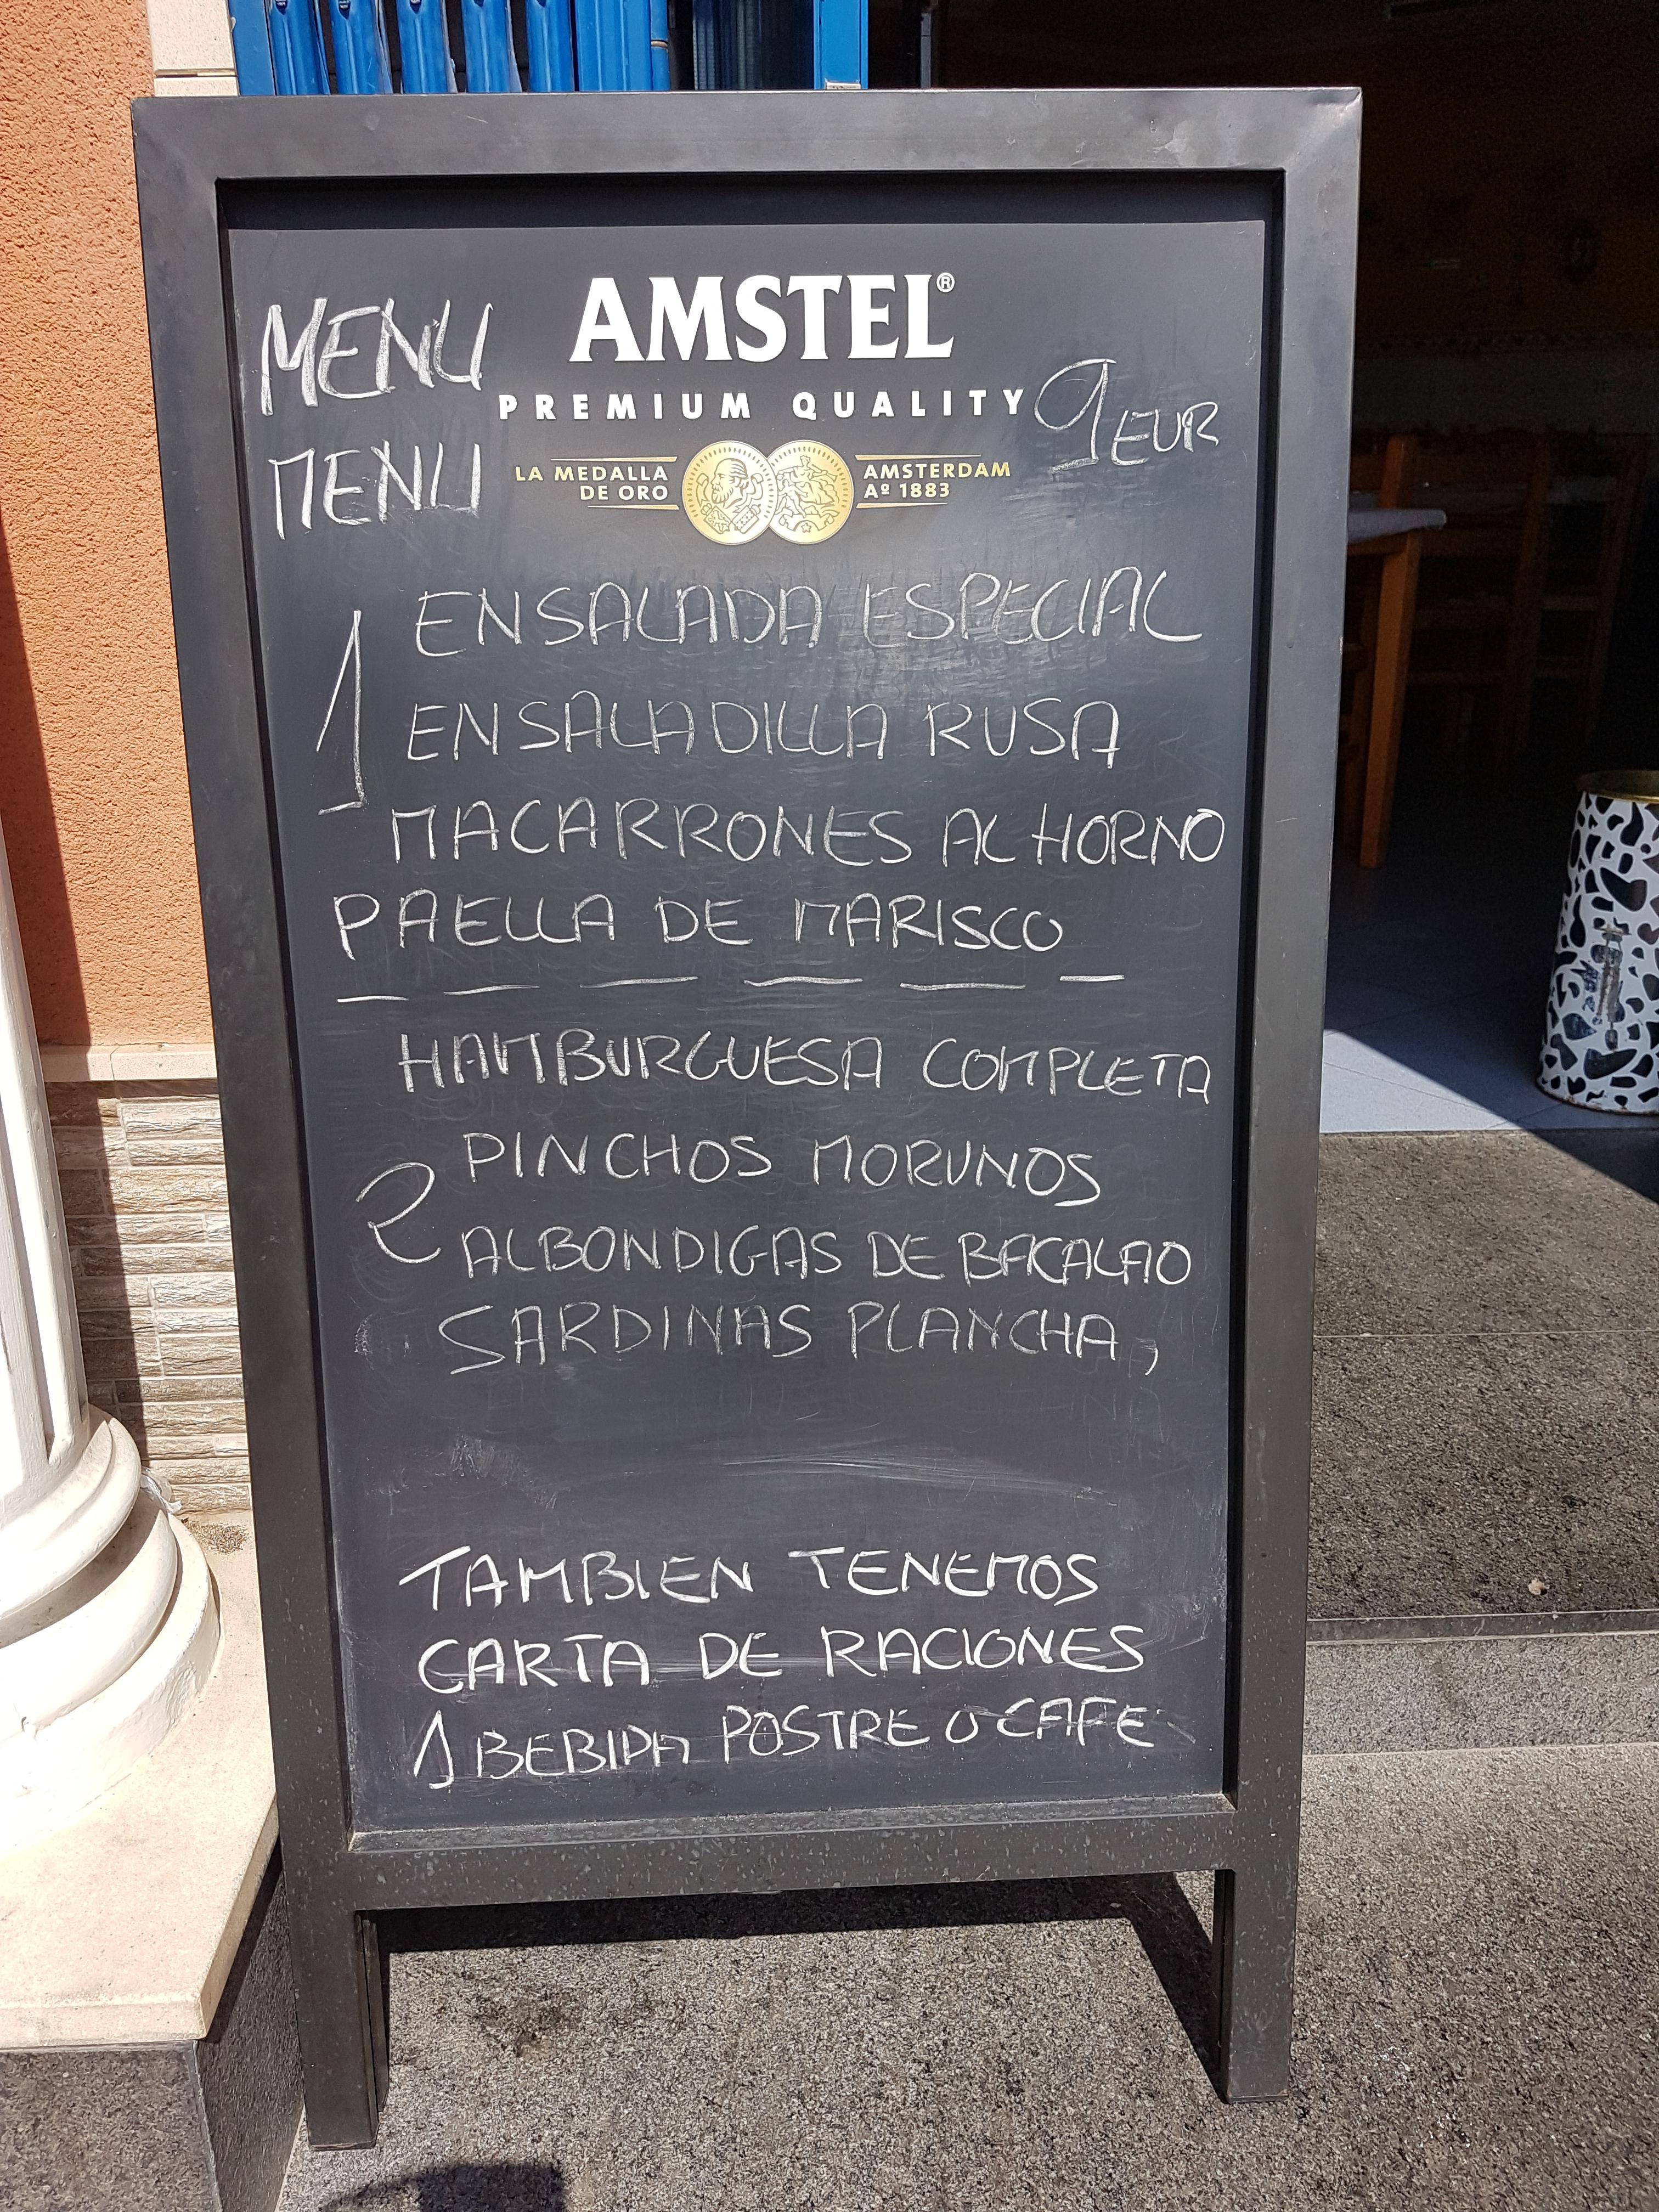 AMSTEL®
MENU
PREMIUM QUALITY
9 EUR
MENU
LA MEDALLA DE ORO
AMSTERDAM Aº 1883
1
ENSALADA ESPECIAL
ENSALADILLA RUSA
MACARRONES AL HORNO
PAELLA DE MARISCO
HAMBURGUESA COMPLETA
2
PINCHOS MORUNOS
ALBONDIGAS DE BACALAO
SARDINAS PLANCHA,
TAMBIEN TENEMOS
CARTA DE RACIONES
1 BEBIDA POSTRE O CAFE